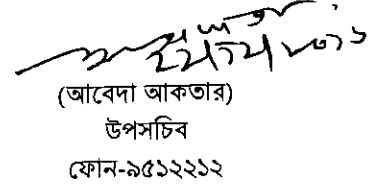 (আবেদা আকতার)
উপসচিব
ফোন-৯৫১২২১২